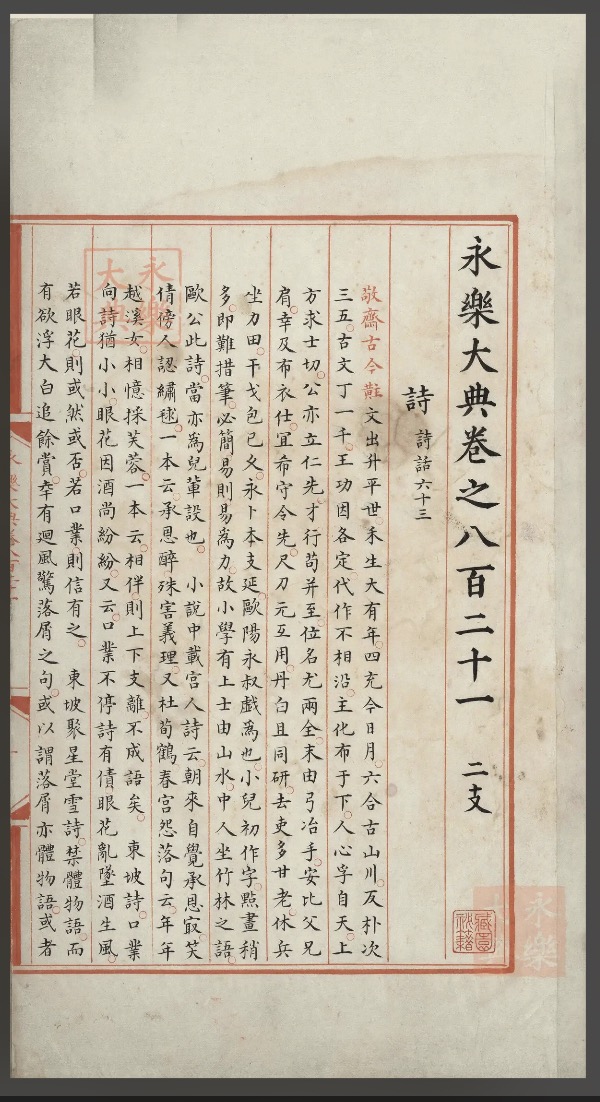 永樂大典卷之八百二十一 二支
詩 詩話六十三
敬齋古今黈文出升平世禾生大有年四充今日月六合古山川反朴次
三五古文丁一千王功因各定代作不相沿主化布于下人心孚自天上
方求士切公亦立仁先才行苟并至位名尤兩全末由弓冶手安比父兄
肩幸及布衣仕宜希守令先尺刀元互用丹白且同研去吏多廿老休兵
坐力田干戈包已久永卜本支延歐陽永叔戲為也小兒初作字點畫稍
多即難措筆必簡易則易為力故小學有上士由山水中人坐竹林之語
歐公此詩當亦為兒輩設也 小說中載宮人詩云朝來自覺承恩㝡笑
倩傍人認繡毬一本云承恩醉殊害義理又杜荀鶴春宮怨落句云年年
越溪女相憶採芙蓉一本云相伴則上下支離不成語矣 東坡詩口業
向詩猶小小眼花因酒尚紛紛又云口業不停詩有債眼花亂墜酒生風
若眼花則或然或否若口業則信有之 東坡聚星堂雪詩禁體物語而
有欲浮大白追餘賞幸有廻風驚落屑之句或以謂落屑亦體物語或者
永樂
大典
永樂
藏園
秘籍